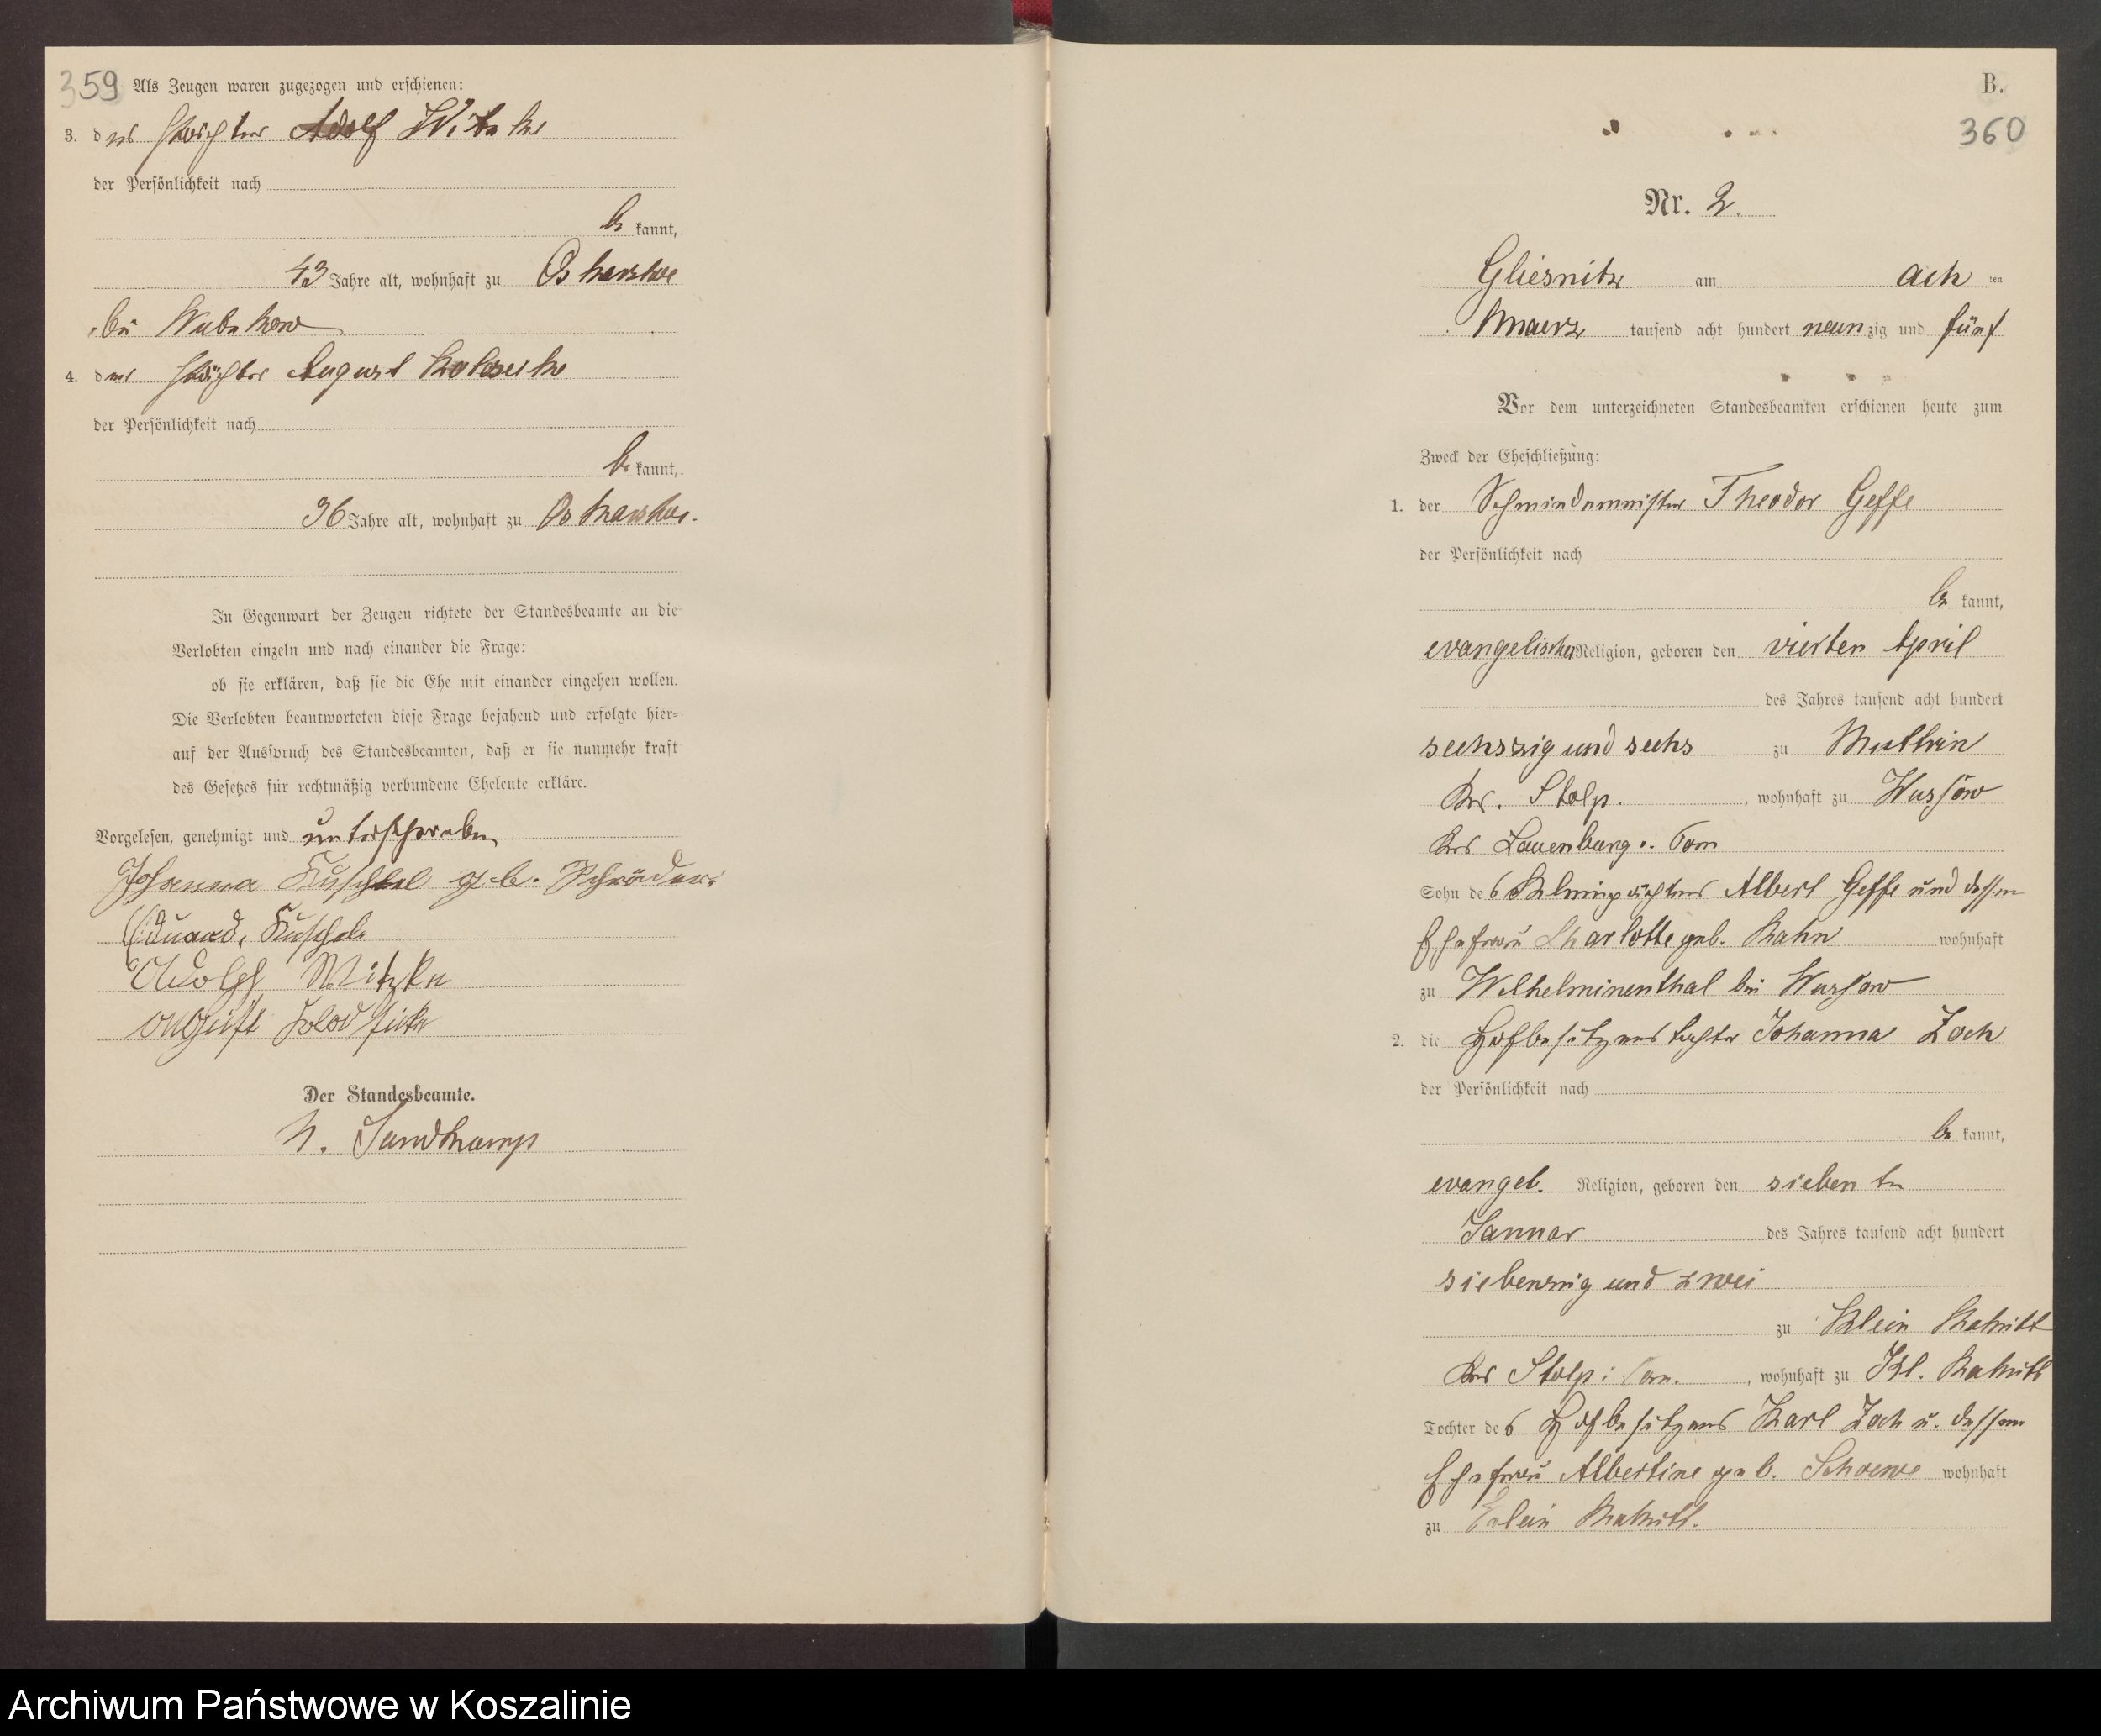 359 Als Zeugen waren zugezogen und erschienen:
3. der Pächter Adolf Witzke
der Persönlichkeit nach
be kannt,
43 Jahre alt, wohnhaft zu Oskarshoe
bei
4. der Pächter August
der Persönlichkeit nach
be kannt,
36 Jahre alt, wohnhaft zu Oskarshoe.
In Gegenwart der Zeugen richtete der Standesbeamte an die
Verlobten einzeln und nach einander die Frage:
ob sie erklären, daß sie die Ehe mit einander eingehen wollen.
Die Verlobten beantworteten diese Frage bejahend und erfolgte hier-
auf der Ausspruch des Standesbeamten, daß er sie nunmehr kraft
des Gesetzes für rechtmäßig verbundene Eheleute erkläre.
Vorgelesen, genehmigt und unterschrieben
Johanna Kuschel geb. Schröder.
Eduard Kuschel
Adolph Witzke
August
Der Standesbeamte.
Sandkamp
B.
360
Nr. 2.
Gliesnitz am ach ten
Maerz tausend acht hundert neun zig und fünf
Vor dem unterzeichneten Standesbeamten erschienen heute zum
Zweck der Eheschließung:
1. der Schmiedemeister Theodor Geffe
der Persönlichkeit nach
be kannt,
evangelischer Religion, geboren den vierten April
des Jahres tausend acht hundert
sechszig und sechs zu Muttrin
Krs. Stolp. , wohnhaft zu Wussow
Krs Lauenburg i. Pom
Sohn des Albert Geffe und dessen
Ehefrau Charlotte geb. Kahn wohnhaft
zu Wilhelminenthal bei Wussow
2. die Hofbesitzerstochter Johanna Zoch
der Persönlichkeit nach
be kannt,
evangel. Religion, geboren den siebenten
Januar des Jahres tausend acht hundert
siebenzig und zwei
zu Klein Rakitt
Krs Stolp i Pom. , wohnhaft zu Kl. Rakitt
Tochter des Hofbesitzers Karl Zoch u. dessen
Ehefrau Albertine geb. Schoewe wohnhaft
zu Klein Rakitt.
Archiwum Państwowe w Koszalinie